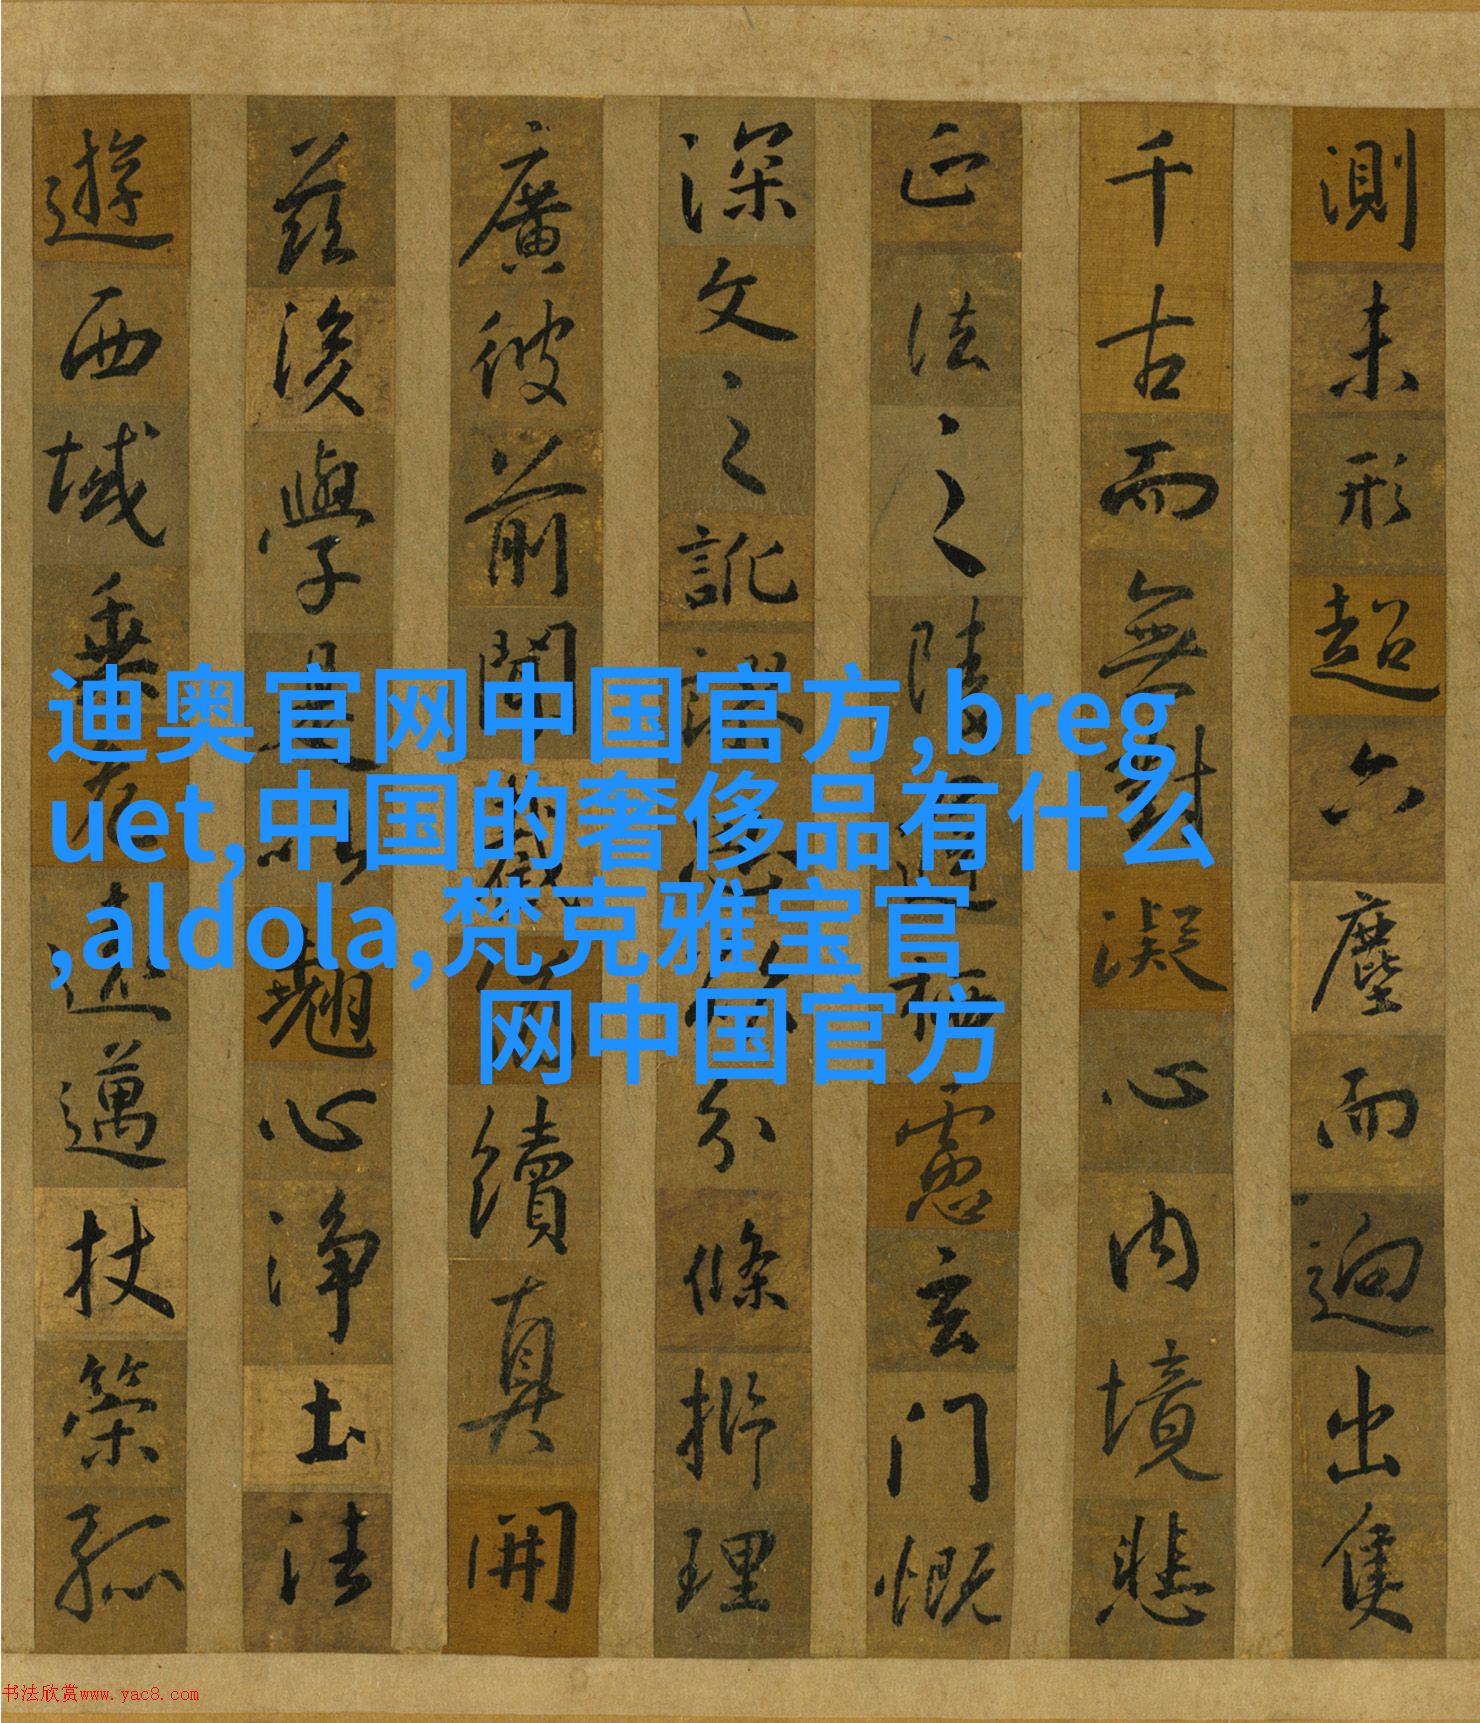 測未形超六塵而迥出隻
千古而無對凝心內境悲
正法之陵遲栖慮玄门慨
深文之訛謬思欲分條析理
廣彼前聞截偽續真開
茲後學是以翹心淨土法
遊西域乘危遠邁杖策孤
迪奥官网中国官方,breg
uet,中国的奢侈品有什么
,aldola,梵克雅宝官
网中国官方
书法欣赏www.yac8.com